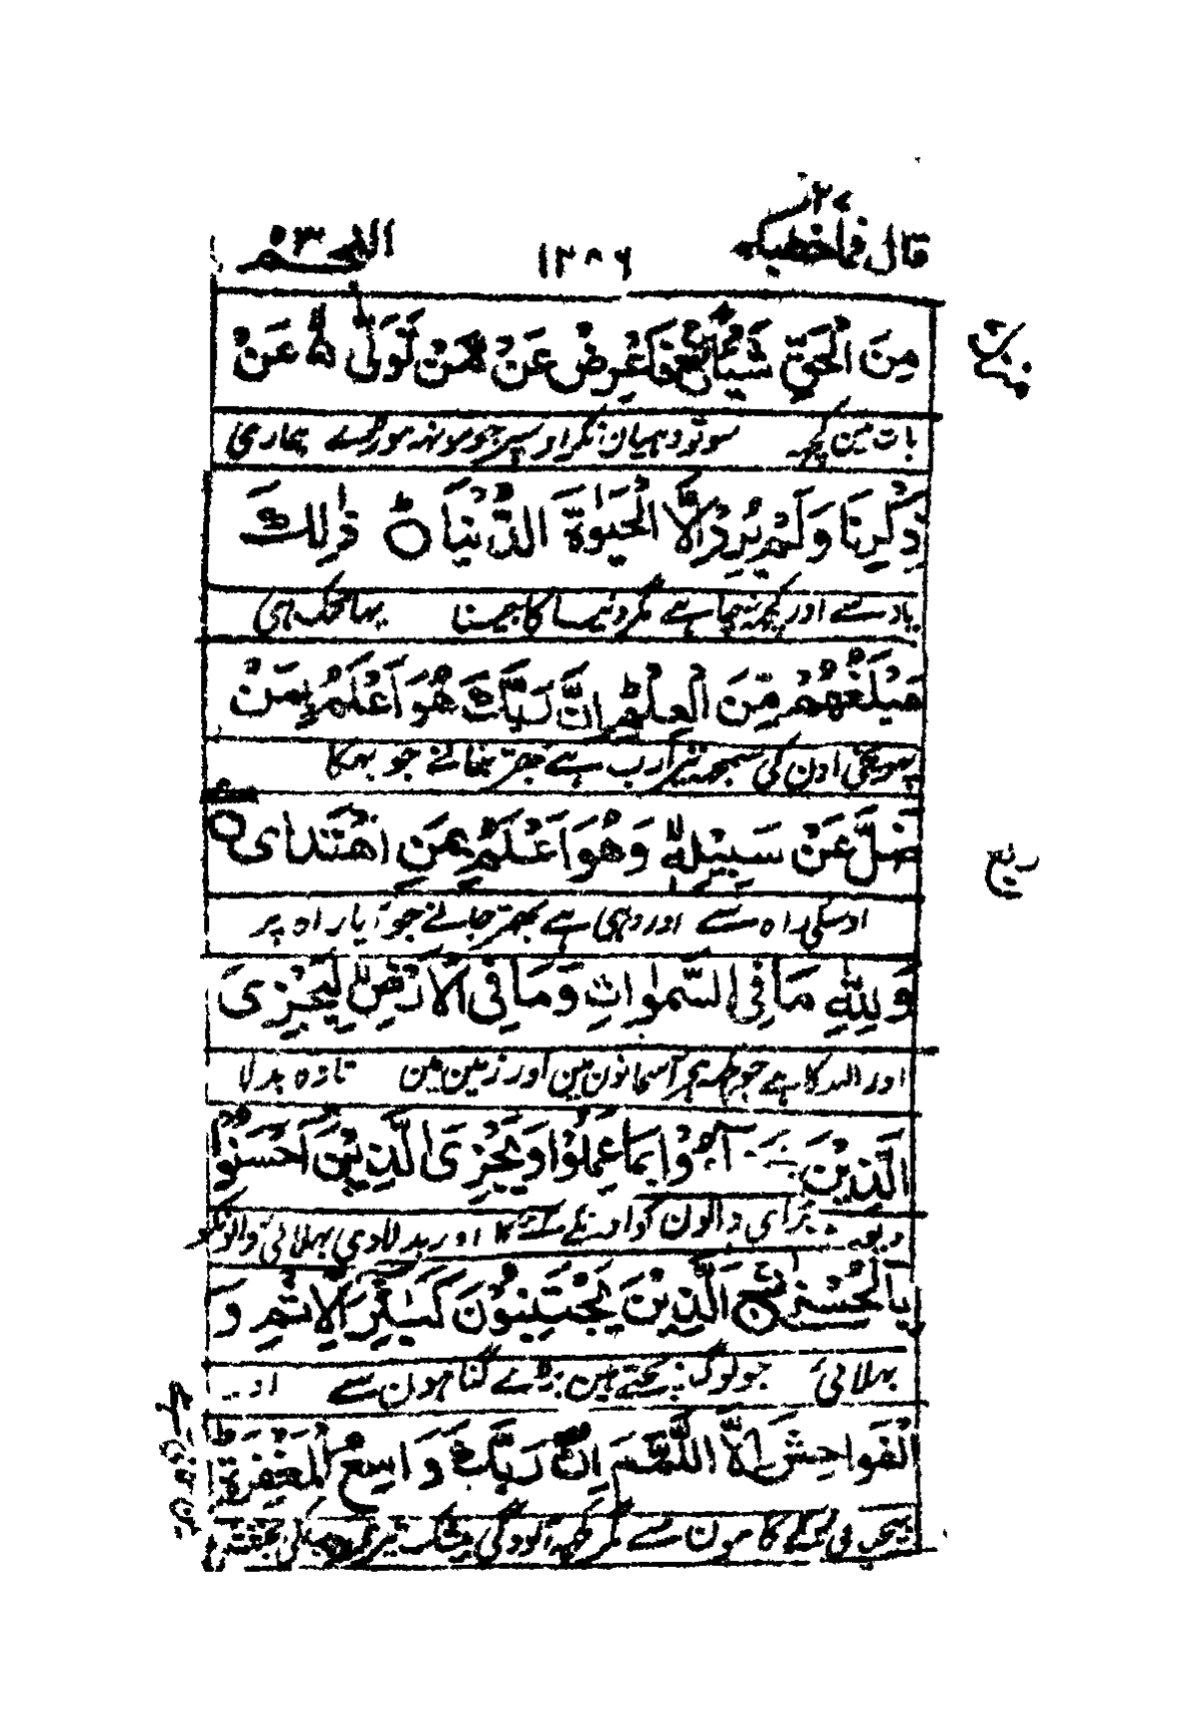 قال فماخطبكم ٢٧
١٣٨٦
النجم ٥٣
مِنَ الْحَقِّ شَيْئًا فَاَعْرِضْ عَنْ مَّنْ تَوَلّٰى عَنْ
بات مین کچھ سو تو دہیان نکر اوسپر جو مونہہ موڑے ہماری
ذِكْرِنَا وَلَمْ يُرِدْ اِلَّا الْحَيٰوةَ الدُّنْيَا ذٰلِكَ
یاد سے اور کچھ نچاہے مگر دنیا کا جینا یہانتک ہی
مَبْلَغُهُمْ مِّنَ الْعِلْمِ اِنَّ رَبَّكَ هُوَ اَعْلَمُ بِمَنْ
پہونچی اون کی سمجھ تیرا رب ہے بہتر جانے جو بہکا
ضَلَّ عَنْ سَبِيْلِهٖ وَهُوَ اَعْلَمُ بِمَنِ اهْتَدٰى
اوسکی راہ سے اور وہی ہے بہتر جانے جو آیا راہ پر
ربع
وَلِلّٰهِ مَا فِى السَّمٰوٰاتِ وَمَا فِى الْاَرْضِ لِيَجْزِىَ
اور اللہ کا ہے جو کچھ ہے آسمانون مین اور زمین مین تا وہ بدلا
الَّذِيْنَ اَسَآءُوْا بِمَا عَمِلُوْا وَيَجْزِىَ الَّذِيْنَ اَحْسَنُوْا
دیوے برای والون کو اونکے کئے کا اور بدلا دی بہلائی والونکو
بِالْحُسْنٰى الَّذِيْنَ يَجْتَنِبُوْنَ كَبٰٓئِرَ الْاِثْمِ وَ
بہلائی جو لوگ بچتے ہین بڑے گناہون سے اور
الْفَوَاحِشَ اِلَّا اللَّمَمَ اِنَّ رَبَّكَ وَاسِعُ الْمَغْفِرَةِ
بیحیائی کے کامون سے مگر کچھ آلودگی بیشک تیرے